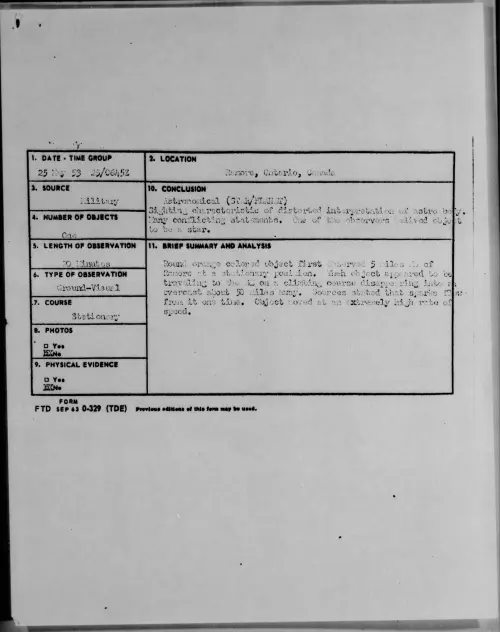 1. DATE - TIME GROUP
25 53 25/0645Z
2. LOCATION
Ramore, Ontario, Canada
3. SOURCE
Military
10. CONCLUSION
Astronomical (STAR/PLANET)
Sighting characteristic of distorted interpretation of astro body.
Many conflicting statements. One of the observers believed object
to be a star.
4. NUMBER OF OBJECTS
One
5. LENGTH OF OBSERVATION
Minutes
11. BRIEF SUMMARY AND ANALYSIS
Round orange colored object first observed 5 miles of
Ramore at a stationary position. object appeared to be
traveling to the on a climbing course disappearing into
overcast about 50 miles away. Sources stated that sparks
from it one time. Object moved at an extremely high rate of
speed.
6. TYPE OF OBSERVATION
Ground-Visual
7. COURSE
Stationary
8. PHOTOS
□ Yes
No
9. PHYSICAL EVIDENCE
□ Yes
No
FORM
FTD SEP 63 0-329 (TDE) Previous editions of this form may be used.